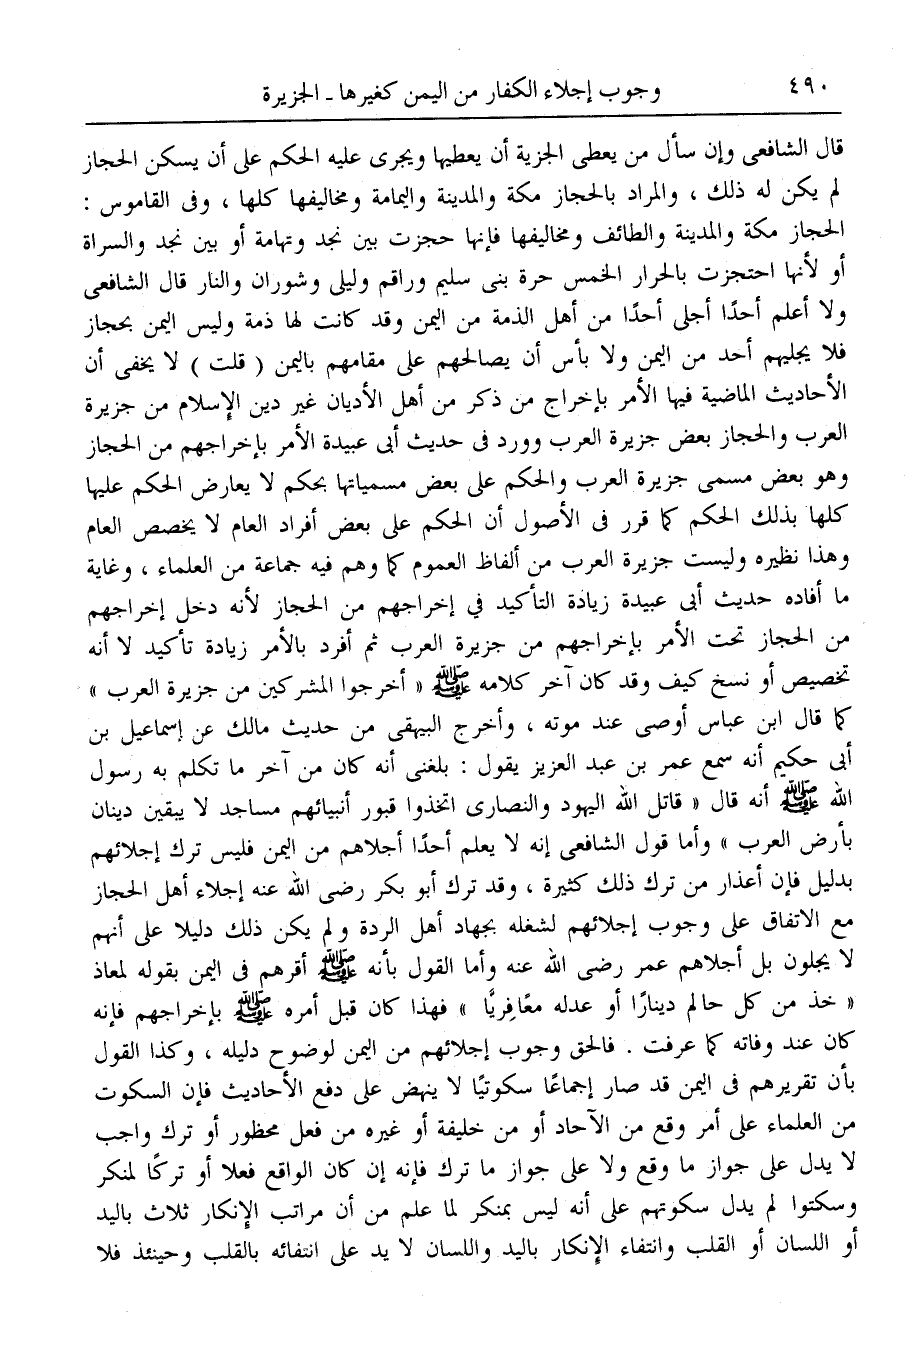 ٤٩٠
وجوب إجلاء الكفار من اليمن كغيرها ـ الجزيرة
قال الشافعى وإن سأل من يعطى الجزية أن يعطيها ويجرى عليه الحكم على أن يسكن الحجاز
لم يكن له ذلك ، والمراد بالحجاز مكة والمدينة واليمامة ومخاليفها كلها ، وفى القاموس :
الحجاز مكة والمدينة والطائف ومخاليفها فإنها حجزت بين نجد وتهامة أو بين نجد والسراة
أو لأنها احتجزت بالحرار الخمس حرة بنى سليم وراقم وليلى وشوران والنار قال الشافعى
ولا أعلم أحدًا أجلى أحدًا من أهل الذمة من اليمن وقد كانت لها ذمة وليس اليمن بحجاز
فلا يجليهم أحد من اليمن ولا بأس أن يصالحهم على مقامهم باليمن ( قلت ) لا يخفى أن
الأحاديث الماضية فيها الأمر بإخراج من ذكر من أهل الأديان غير دين الإسلام من جزيرة
العرب والحجاز بعض جزيرة العرب وورد فى حديث أبى عبيدة الأمر بإخراجهم من الحجاز
وهو بعض مسمى جزيرة العرب والحكم على بعض مسمياتها بحكم لا يعارض الحكم عليها
كلها بذلك الحكم كما قرر فى الأصول أن الحكم على بعض أفراد العام لا يخصص العام
وهذا نظيره وليست جزيرة العرب من ألفاظ العموم كما وهم فيه جماعة من العلماء ، وغاية
ما أفاده حديث أبى عبيدة زيادة التأكيد في إخراجهم من الحجاز لأنه دخل إخراجهم
من الحجاز تحت الأمر بإخراجهم من جزيرة العرب ثم أفرد بالأمر زيادة تأكيد لا أنه
تخصيص أو نسخ كيف وقد كان آخر كلامه ﷺ « أخرجوا المشركين من جزيرة العرب »
كما قال ابن عباس أوصى عند موته ، وأخرج البيهقى من حديث مالك عن إسماعيل بن
أبى حكيم أنه سمع عمر بن عبد العزيز يقول : بلغنى أنه كان من آخر ما تكلم به رسول
الله ﷺ أنه قال « قاتل الله اليهود والنصارى اتخذوا قبور أنبيائهم مساجد لا يبقين دينان
بأرض العرب » وأما قول الشافعى إنه لا يعلم أحدًا أجلاهم من اليمن فليس ترك إجلائهم
بدليل فإن أعذار من ترك ذلك كثيرة ، وقد ترك أبو بكر رضى الله عنه إجلاء أهل الحجاز
مع الاتفاق على وجوب إجلائهم لشغله بجهاد أهل الردة ولم يكن ذلك دليلا على أنهم
لا يجلون بل أجلاهم عمر رضى الله عنه وأما القول بأنه ﷺ أقرهم فى اليمن بقوله لمعاذ
« خذ من كل حالم دينارًا أو عدله معَافِريًّا » فهذا كان قبل أمره ﷺ بإخراجهم فإنه
كان عند وفاته كما عرفت . فالحق وجوب إجلائهم من اليمن لوضوح دليله ، وكذا القول
بأن تقريرهم فى اليمن قد صار إجماعًا سكوتيًا لا ينهض على دفع الأحاديث فإن السكوت
من العلماء على أمر وقع من الآحاد أو من خليفة أو غيره من فعل محظور أو ترك واجب
لا يدل على جواز ما وقع ولا على جواز ما ترك فإنه إن كان الواقع فعلا أو تركًا لمنكر
وسكتوا لم يدل سكوتهم على أنه ليس بمنكر لما علم من أن مراتب الإنكار ثلاث باليد
أو اللسان أو القلب وانتفاء الإنكار باليد واللسان لا يد على انتفائه بالقلب وحينئذ فلا